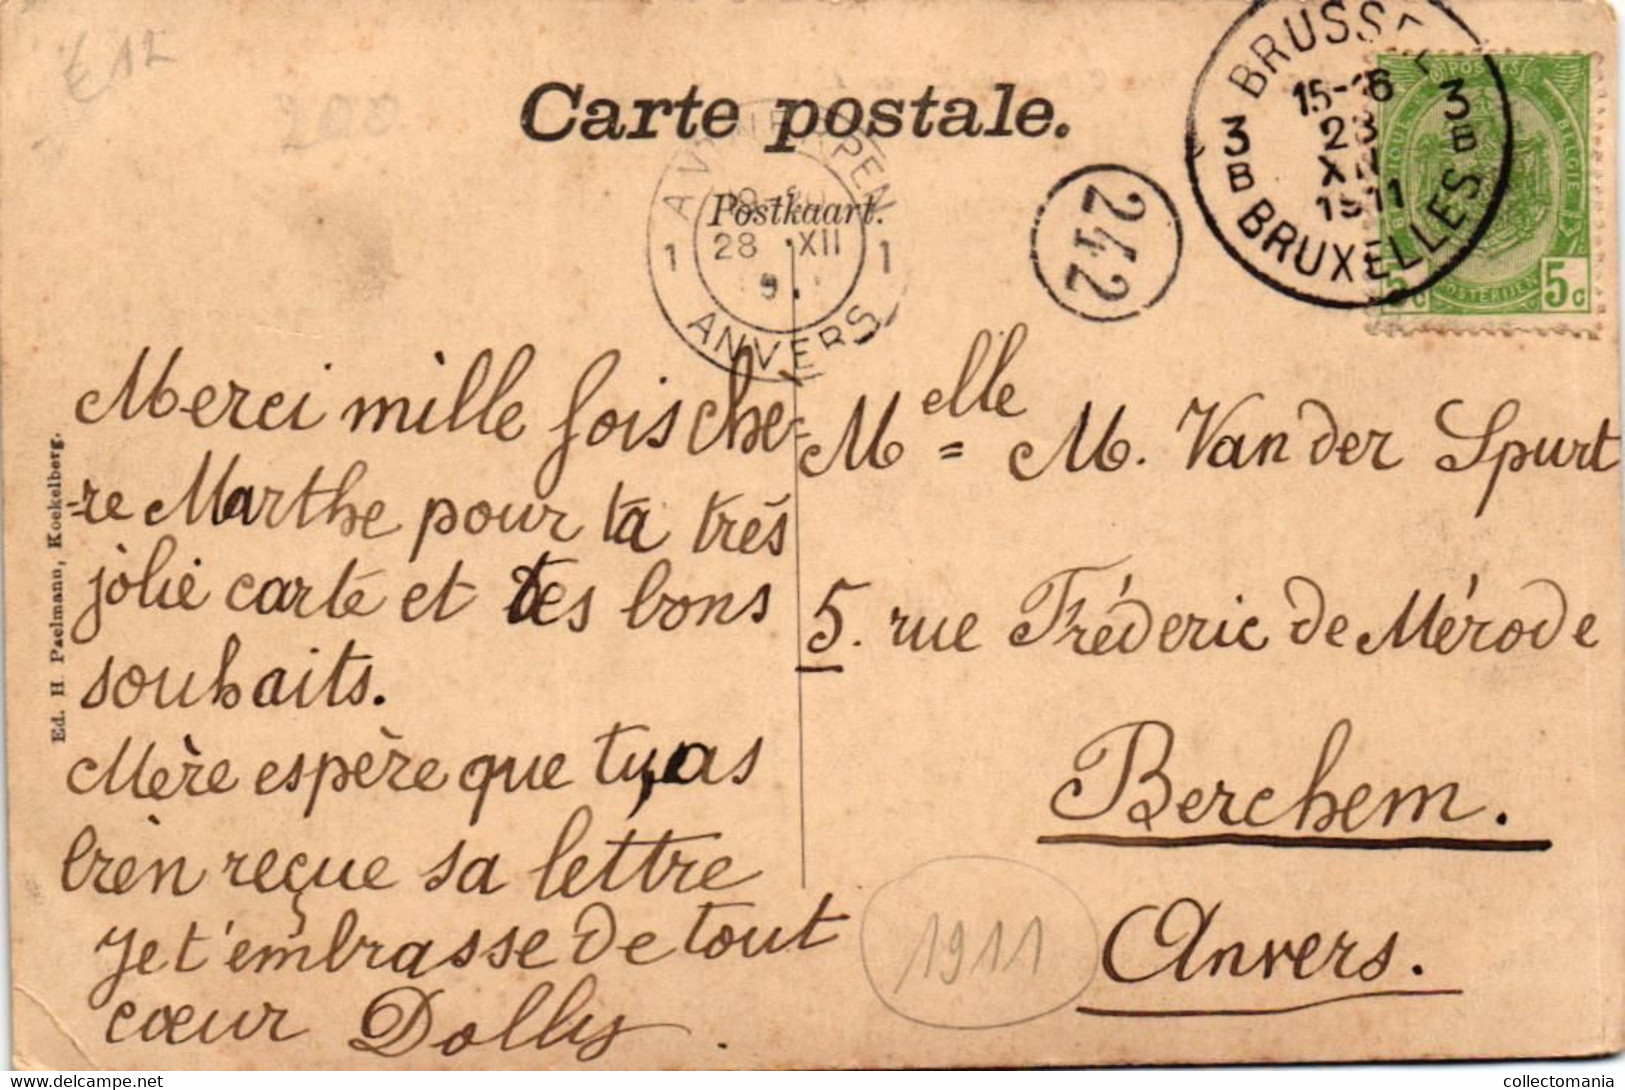 £12
200
Carte postale.
Postkaart.
ANTWERPEN
1 28 XII 1
ANVERS
242
BRUSSEL
15-16
3 28 3
B XII B
1911
BRUXELLES
POSTES
BELGIQUE BELGIE
POSTERIJEN
5c 5c
Merci mille fois chè-
-re Marthe pour ta très
jolie carte et tes bons
souhaits.
Mère espère que tu as
bien reçue sa lettre
Je t'embrasse de tout
cœur Dolly.
Melle = M. Van der Spurt
5. rue Fréderic de Mérode
Berchem.
Anvers.
1911
Ed. H. Paelmann, Koekelberg.
collectomania